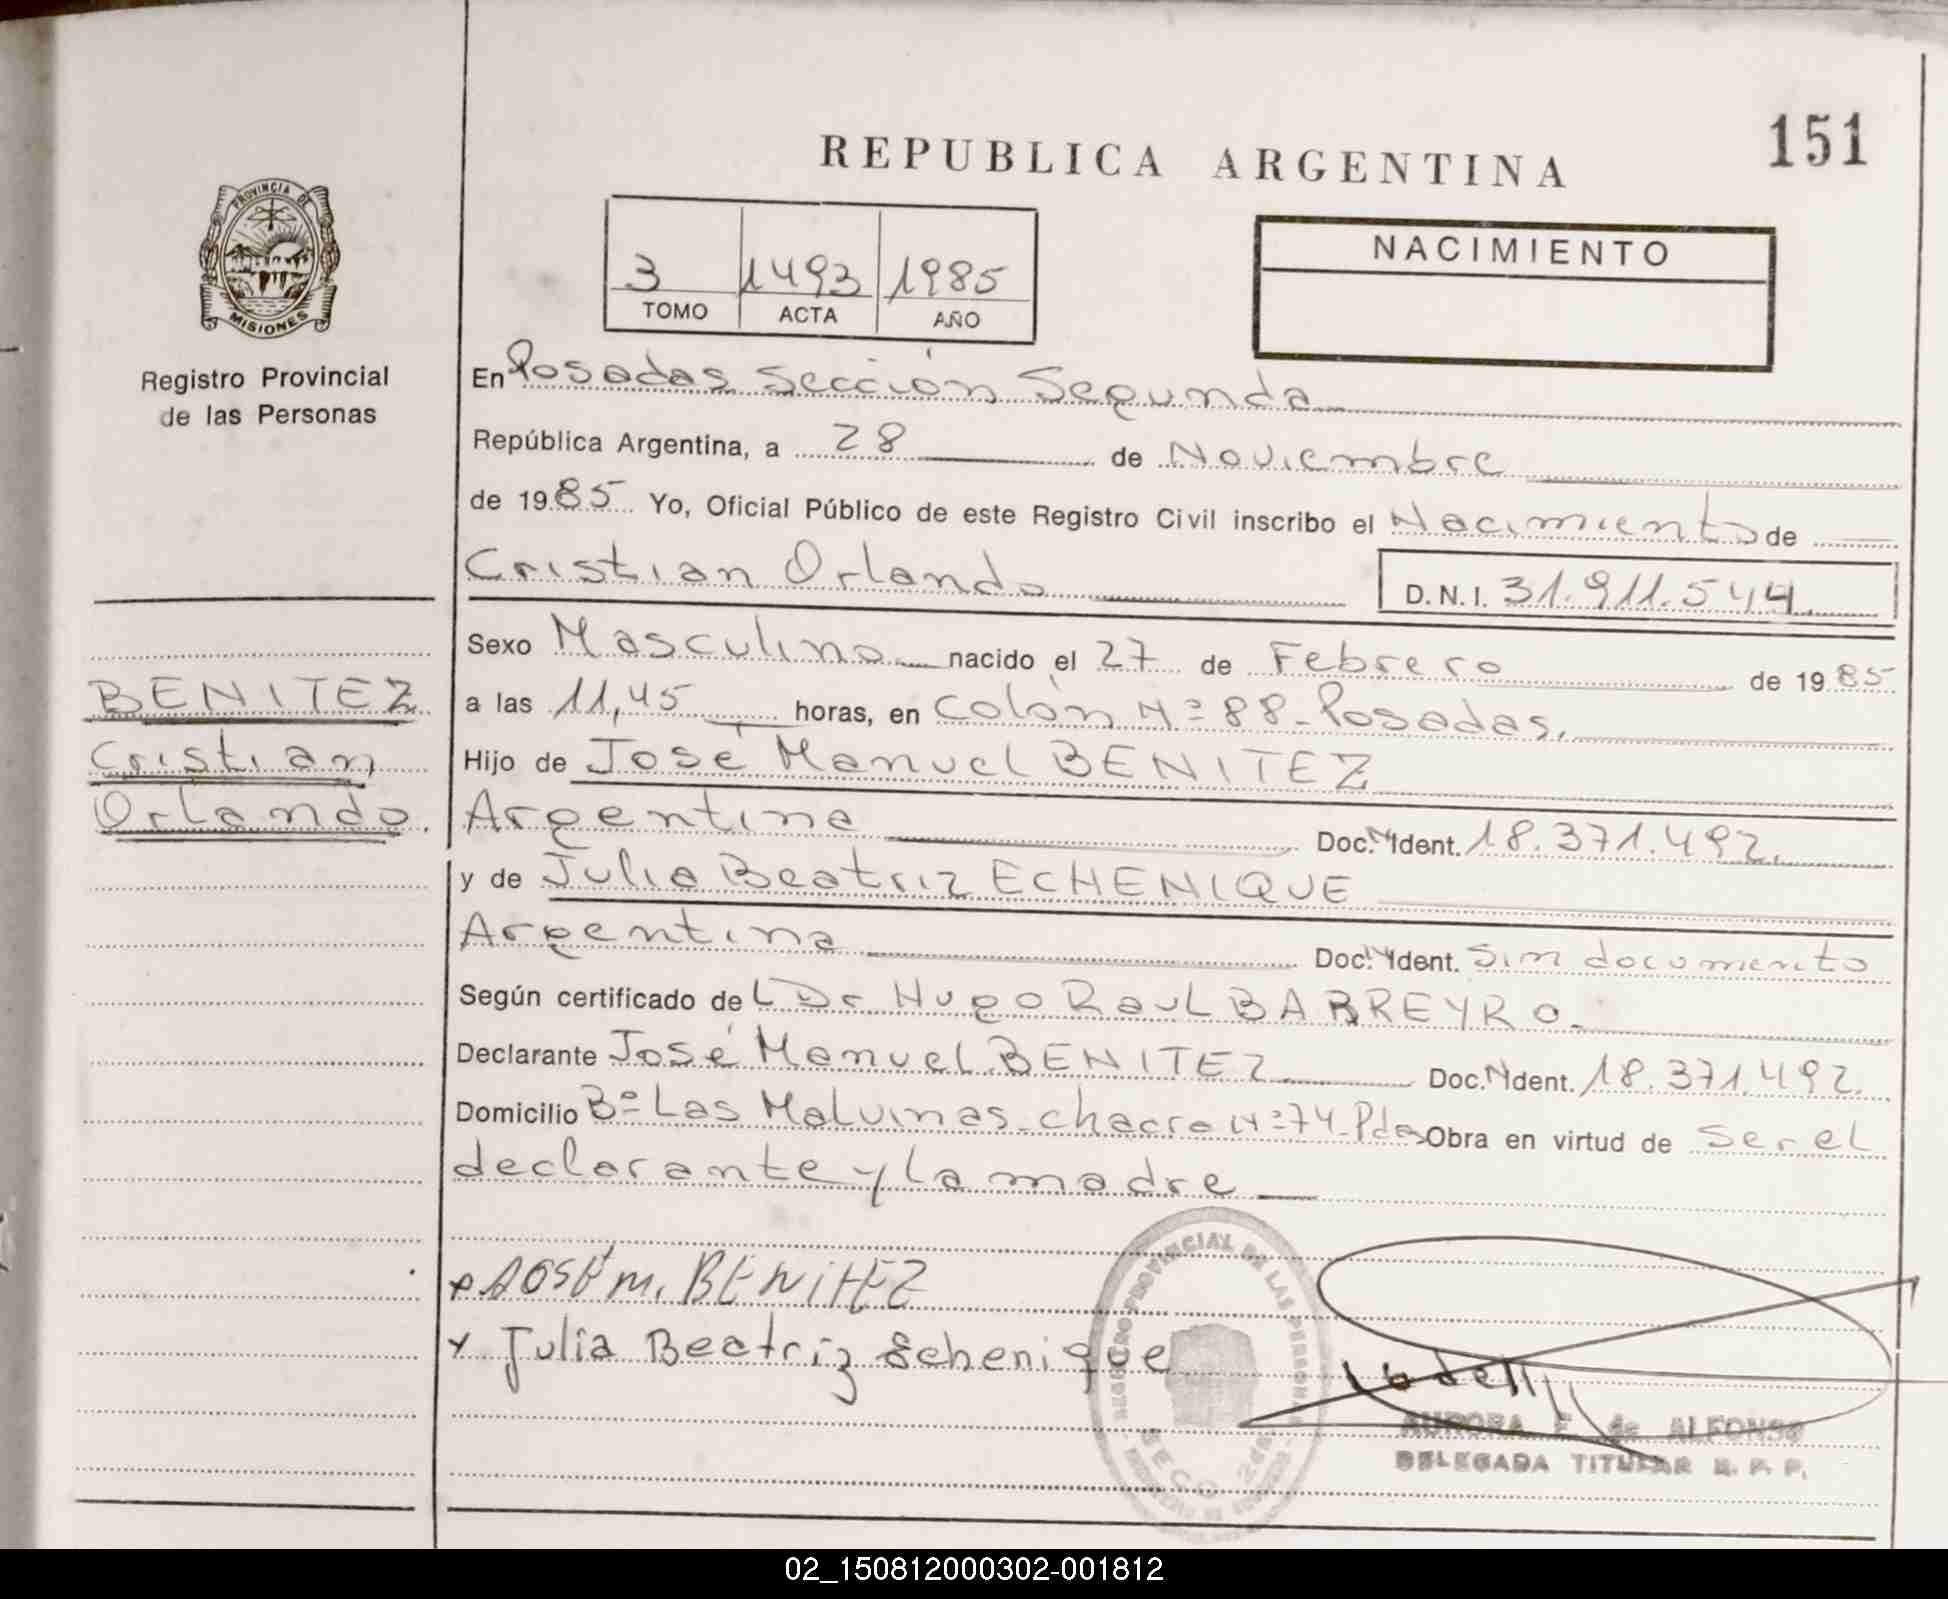 151
REPUBLICA ARGENTINA
PROVINCIA DE
MISIONES
Registro Provincial
de las Personas
3 1493 1985
TOMO ACTA AÑO
NACIMIENTO
En Posadas Sección Segunda
República Argentina, a 28 de Noviembre
de 1985 Yo, Oficial Público de este Registro Civil inscribo el Nacimiento de
Cristian Orlando D.N.I. 31.911.544
Sexo Masculino nacido el 27 de Febrero de 1985
a las 11,45 horas, en Colón Nº 88-Posadas.
Hijo de José Manuel BENITEZ
Argentina Doc. N Ident. 18.371.492.
y de Julia Beatriz ECHENIQUE
Argentina Doc. N Ident. Sin documento
Según certificado de L Dr Hugo Raul BARREYRO.
Declarante José Manuel BENITEZ Doc. N Ident. 18.371.492.
Domicilio Bº Las Malvinas-chacra Nº 74-Pdas Obra en virtud de Ser el
declarante y la madre
BENITEZ
Cristian
Orlando.
JOSÉ M. BENITEZ
x Julia Beatriz Echenique
REGISTRO PROVINCIAL DE LAS PERSONAS
SECC 2da
AURORA F de ALFONSO
DELEGADA TITULAR R. P. P.
02_150812000302-001812